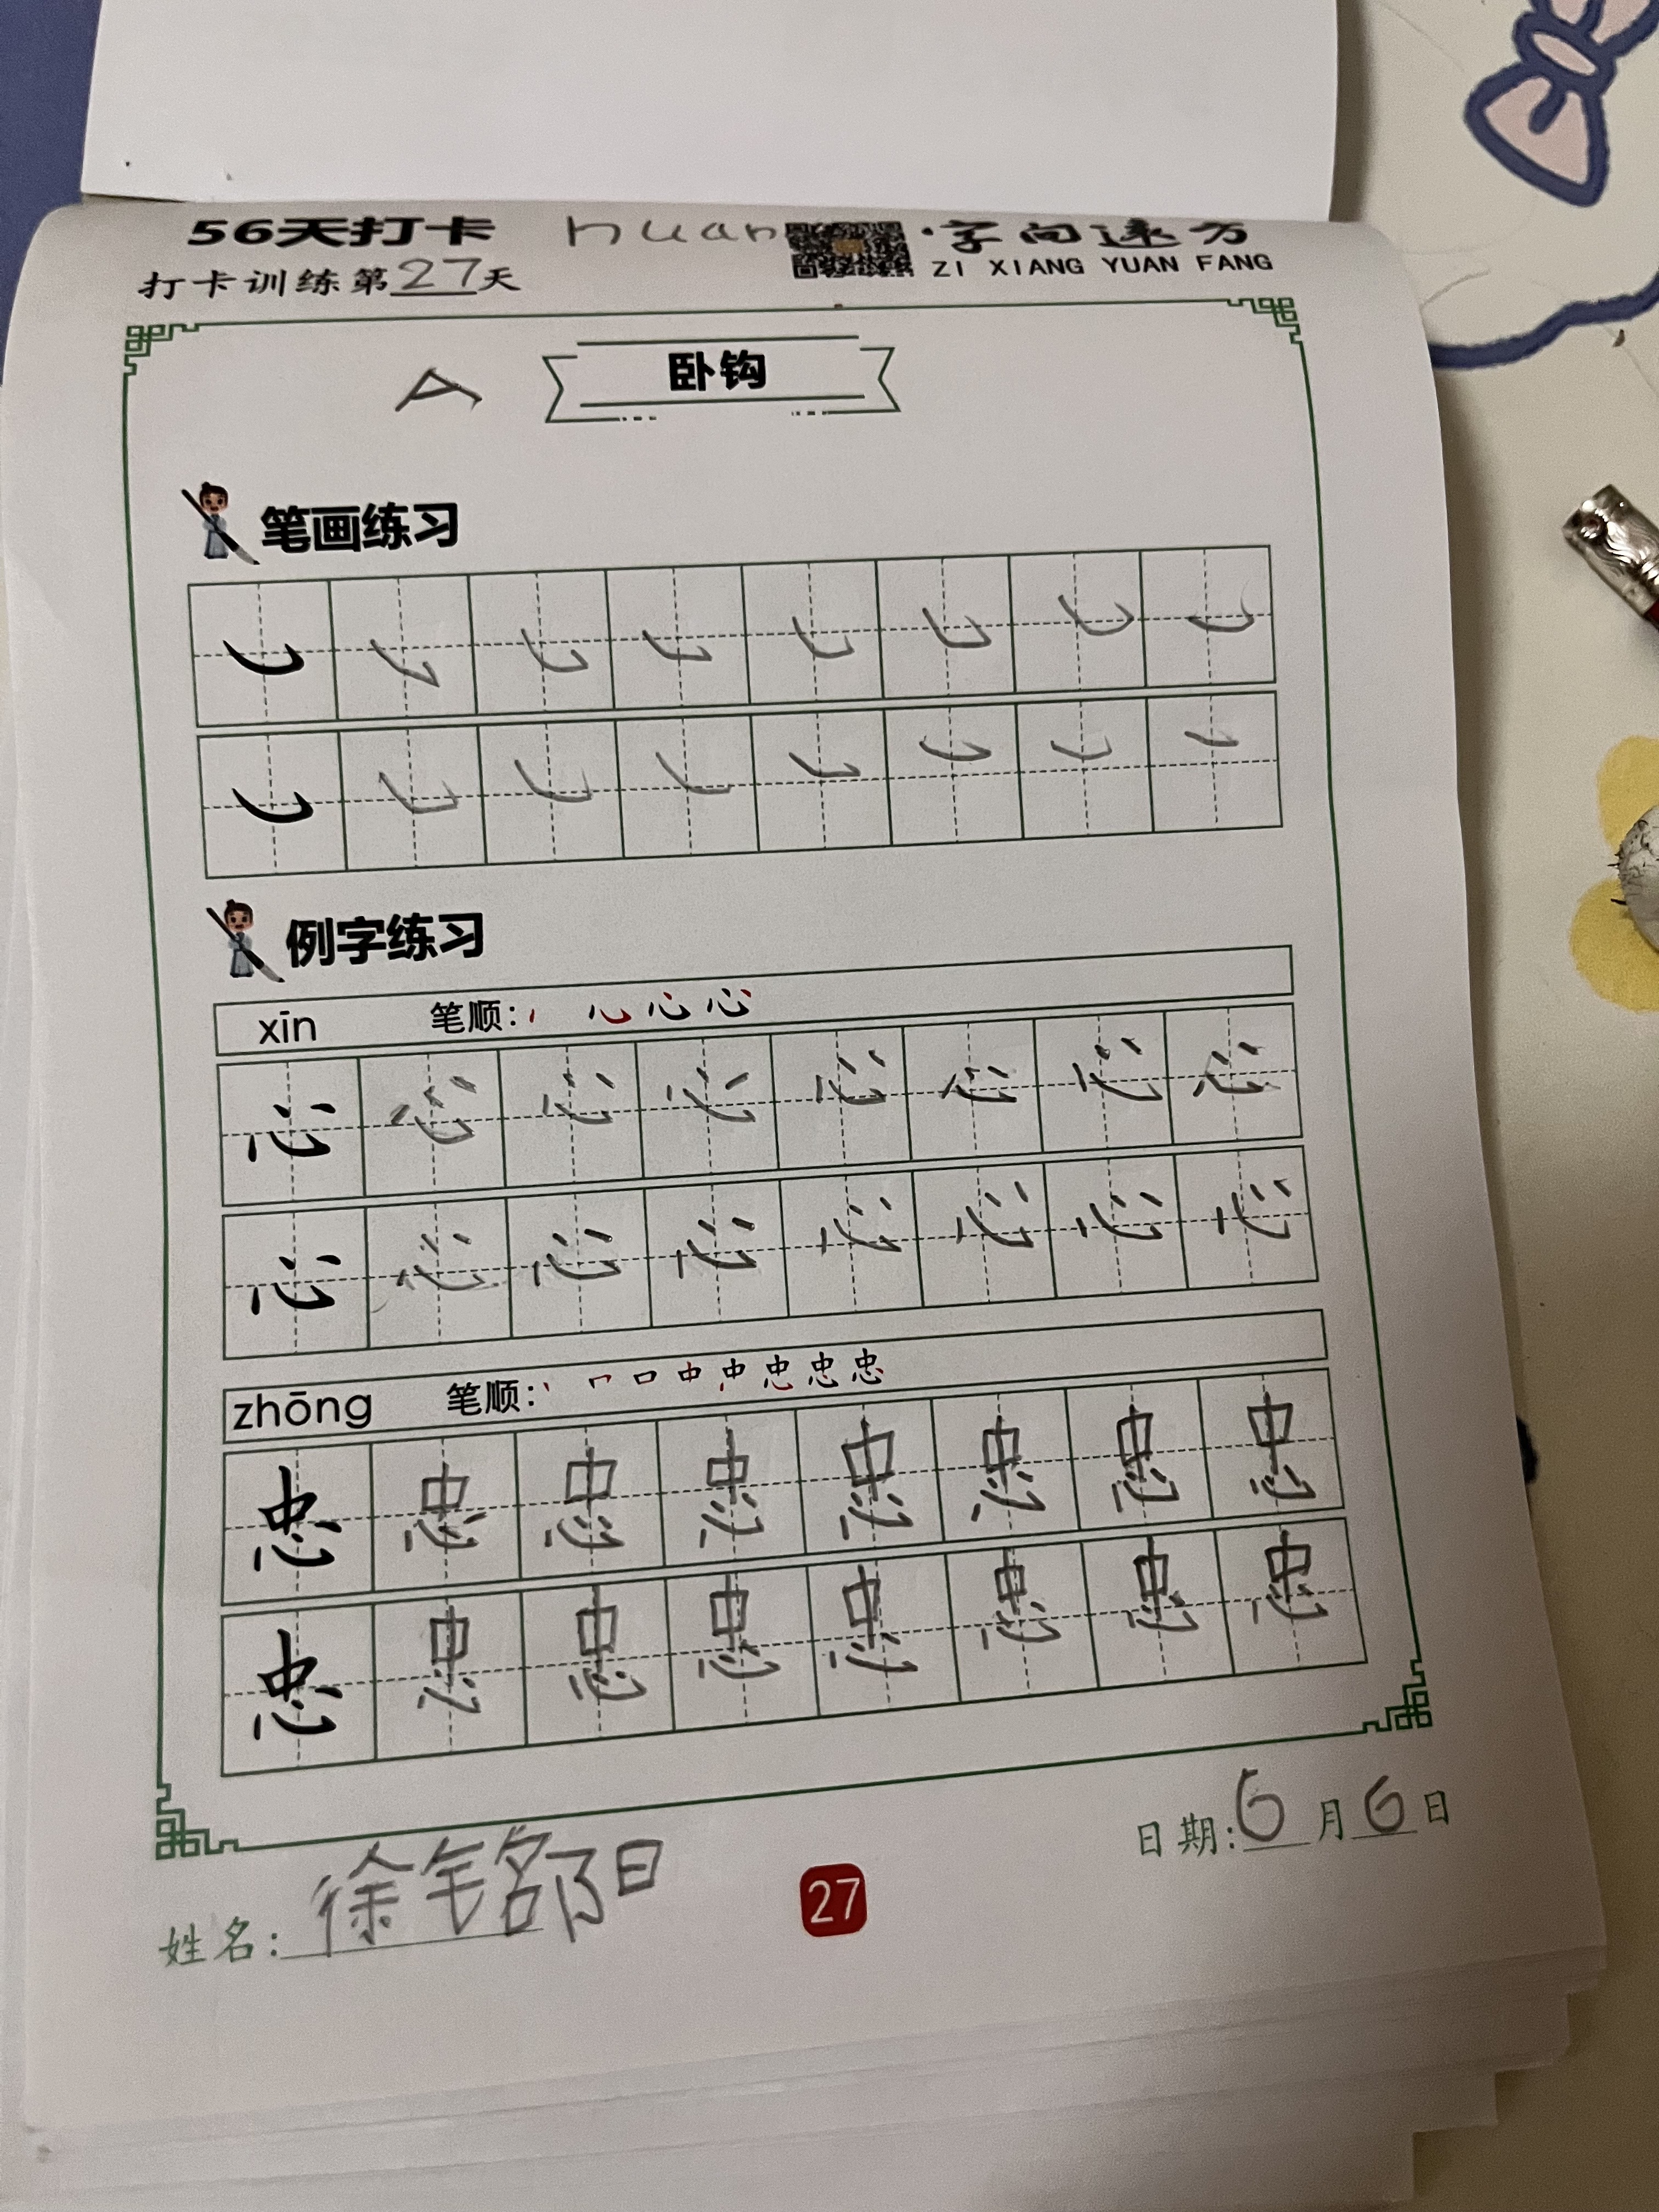 56天打卡 huan ·字向速方
ZI XIANG YUAN FANG
打卡训练第27天
A 卧钩
笔画练习
例字练习
xīn 笔顺：
心 心 心 心 心 心 心 心
心 心 心 心 心 心 心 心
zhōng 笔顺：
忠 忠 忠 忠 忠 忠 忠 忠
忠 忠 忠 忠 忠 忠 忠 忠
日期：6月6日
姓名：徐
27